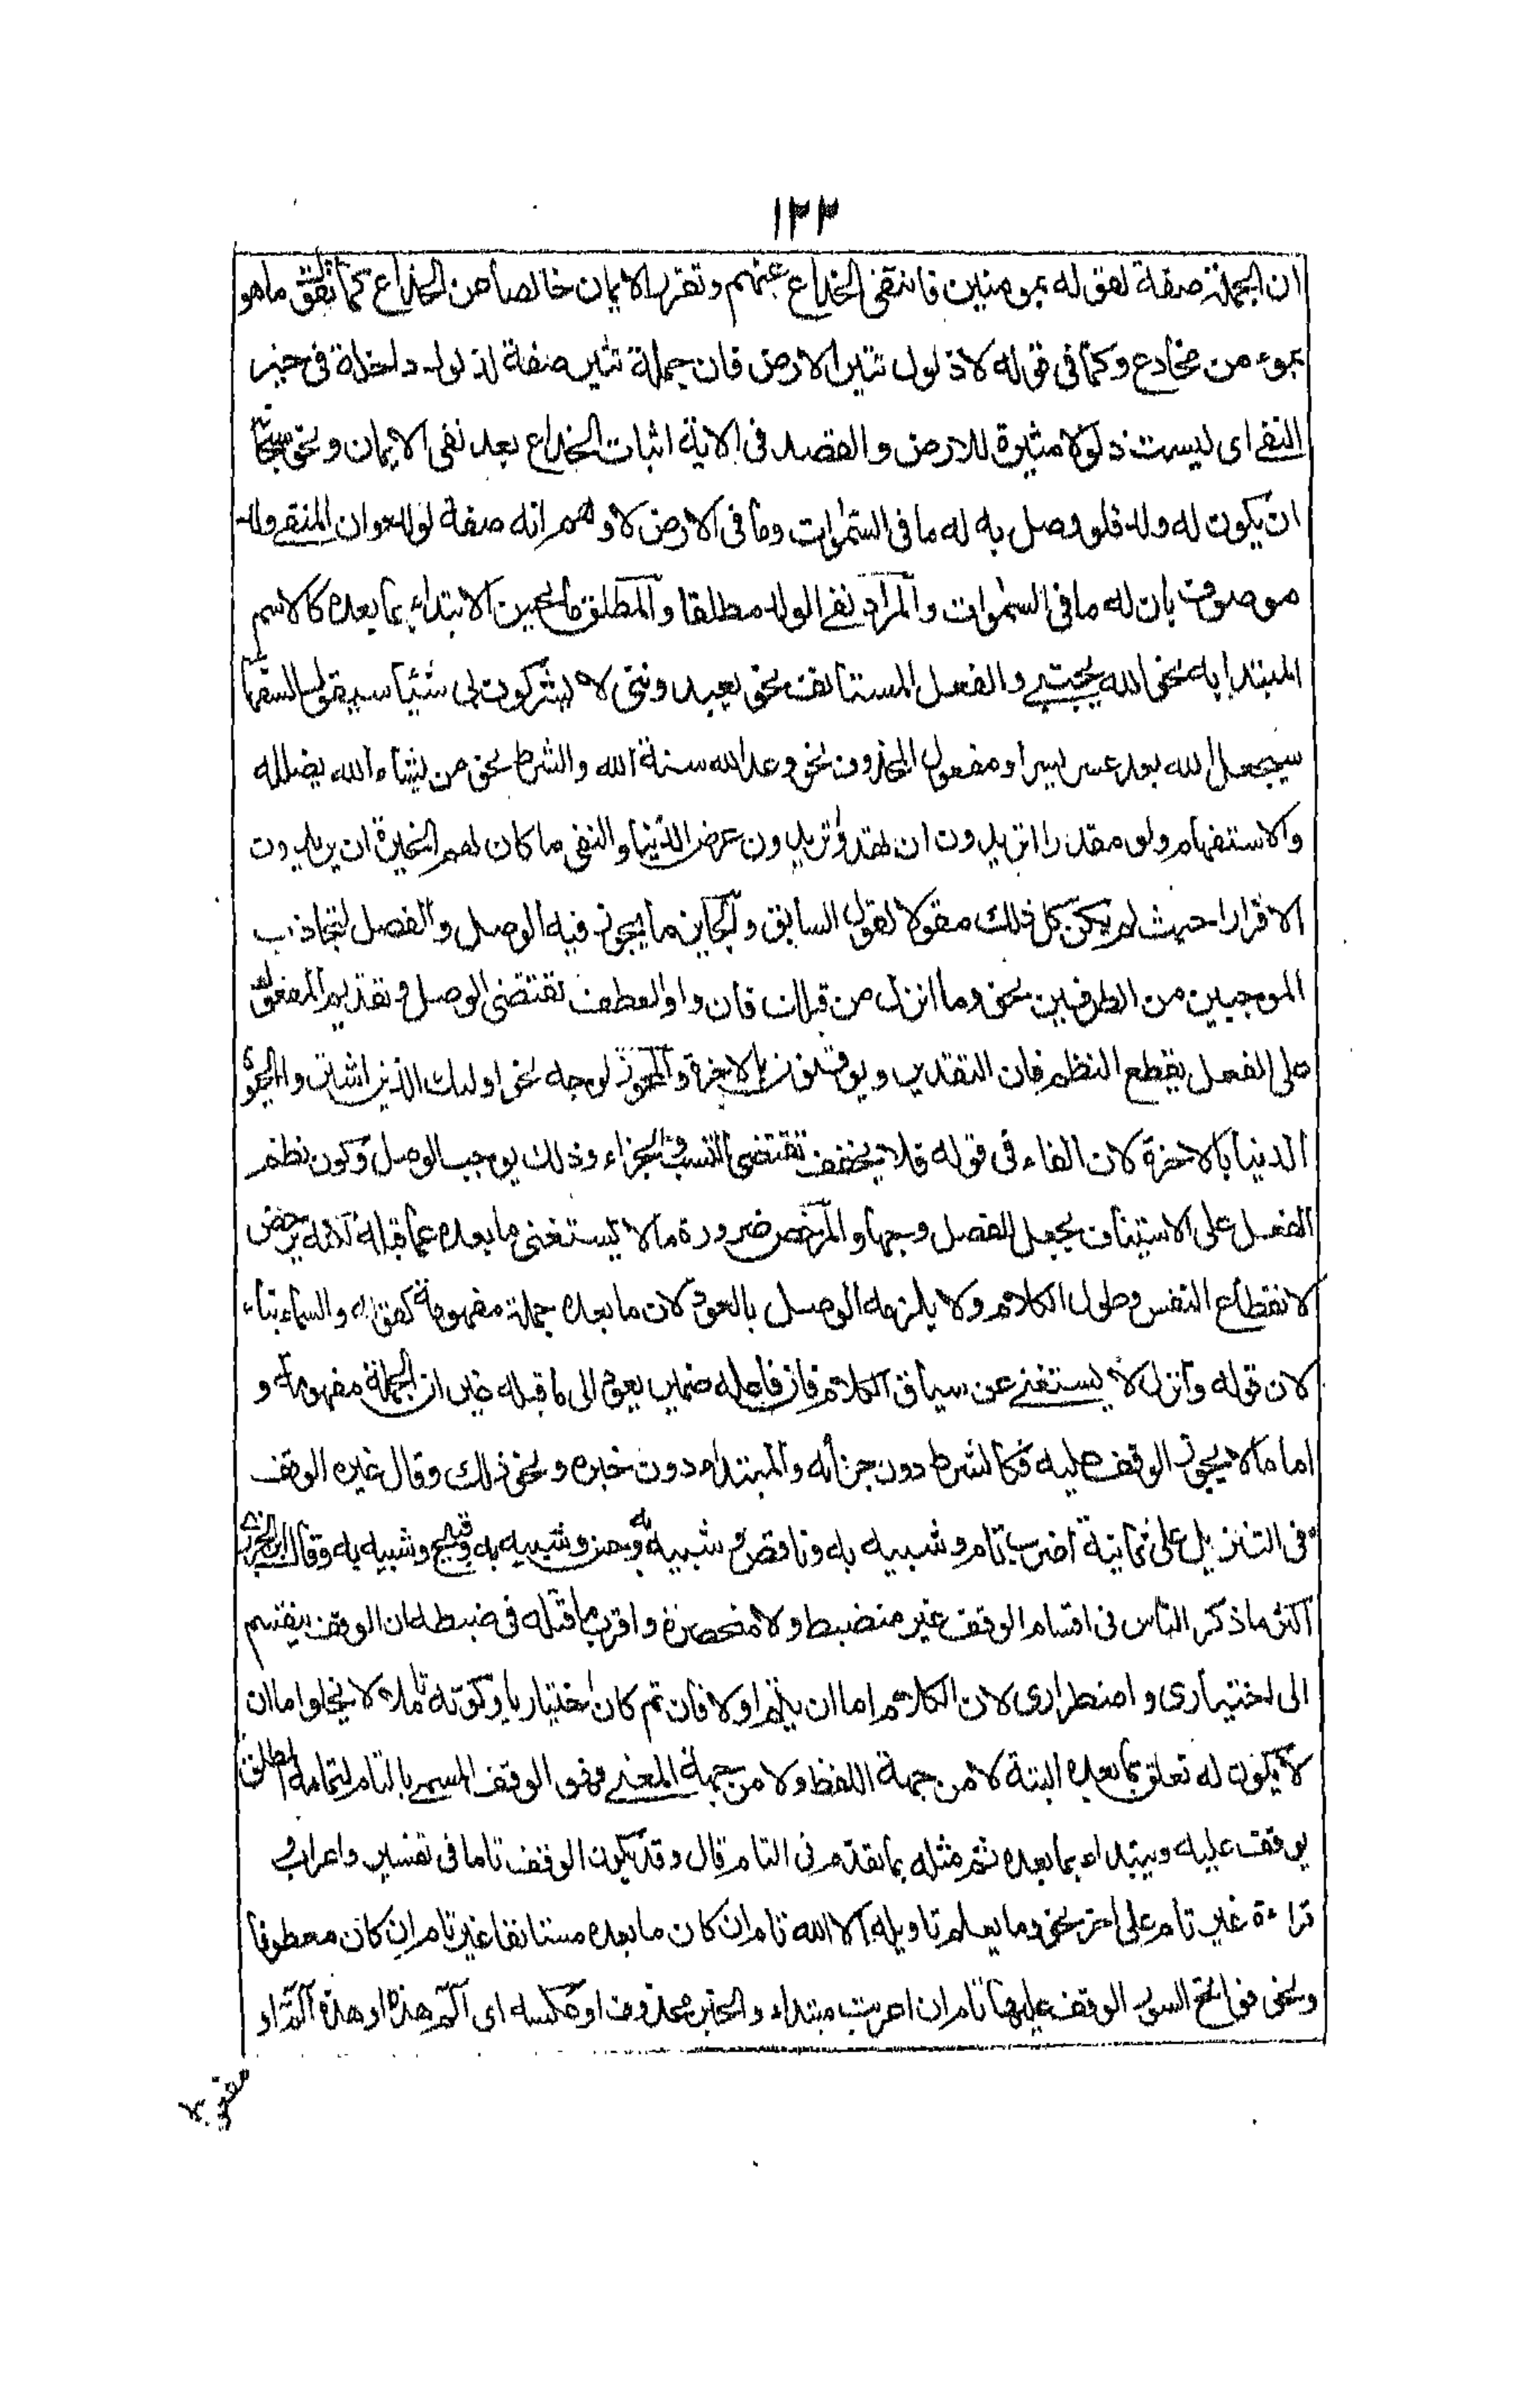 ١٢٢
ان الجملة صفة لقوله بمومنين فانتفى الخداع عنهم وتقرر الايمان خالصا من الخداع كما تقول ما هو
بمومن مخادع وكما فى قوله لا ذلول تثير الارض فان جملة تثير صفة لذلول داخلة فى حيز
النفى اى ليست ذلولا مثيرة للارض والقصد فى الاية اثبات الخداع بعد نفى الايمان ونحو سبحانه
ان يكون له ولد فلو وصل به له ما فى السموات وما فى الارض لاوهم انه صفة لولد وان المنفى ولد
موصوف بان له ما فى السموات والمراد نفى الولد مطلقا والمطلق ما يحسن الابتداء بما بعده كالاسم
المبتدا به نحو الله يجتبى والفعل المستانف نحو يعبدوننى لا يشركون بى شيئا سيقول السفها
سيجعل الله بعد عسر يسرا ومفعول المحذوف نحو وعد الله سنة الله والشرط نحو من يشاء الله يضلله
والاستفهام ولو مقدرا اتريدون ان تهدوا تريدون عرض الدنيا والنفى ما كان لهم الخيرة ان يريدون
الا فرارا حيث لم يكن كل ذلك مقولا لقول السابق والجايز ما يجوز فيه الوصل والفصل لتجاذب
الموجبين من الطرفين نحو وما انزل من قبلك فان واو العطف تقتضى الوصل وتقديم المفعول
على الفعل يقطع النظم فان التقدير ويوقنون بالاخرة والمجوز لوجه نحو اولئك الذين اشتروا الحيوة
الدنيا بالاخرة لان الفاء فى قوله فلا يخفف تقتضى التسبب والجزاء وذلك يوجب الوصل وكون نظم
الفعل على الاستيناف يجعل للفصل وجها والمرخص ضرورة ما لا يستغنى ما بعده عما قبله لكنه يرخص
لانقطاع النفس وطول الكلام ولا يلزمه الوصل بالعود لان ما بعده جملة مفهومة كقوله والسماء بناء
لان قوله وانزل لا يستغنى عن سياق الكلام فان فاعله ضمير يعود الى ما قبله غير ان الجملة مفهومة و
اما ما لا يجوز الوقف عليه فكالشرط دون جزائه والمبتداء دون خبره ونحو ذلك وقال غيره الوقف
فى التنزيل على ثمانية اضرب تام وشبيه به وناقص وشبيه به وحسن وشبيه به وقبيح وشبيه به وقال ابن الجزرى
اكثر ما ذكر الناس فى اقسام الوقف غير منضبط ولا منحصر واقرب ما قلته فى ضبطه ان الوقف ينقسم
الى اختيارى واضطرارى لان الكلام اما ان يتم او لا فان تم كان اختياريا وكونه تاما لا يخلوا اما ان
لا يكون له تعلق بما بعده البتة لا من جهة اللفظ ولا من جهة المعنى فهو الوقف المسمى بالتام لتمامه المطلق
يوقف عليه ويبتداء بما بعده ثم مثله بما تقدم فى التام قال وقد يكون الوقف تاما فى تفسير واعراب و
قراءة غير تام على اخر نحو وما يعلم تاويله الا الله تام ان كان ما بعده مستانفا غير تام ان كان معطوفا
ونحو فواتح السور الوقف عليها تام ان اعربت مبتداء والخبر محذوف او عكسه اى الم هذه او هذه الم او
مفعولا